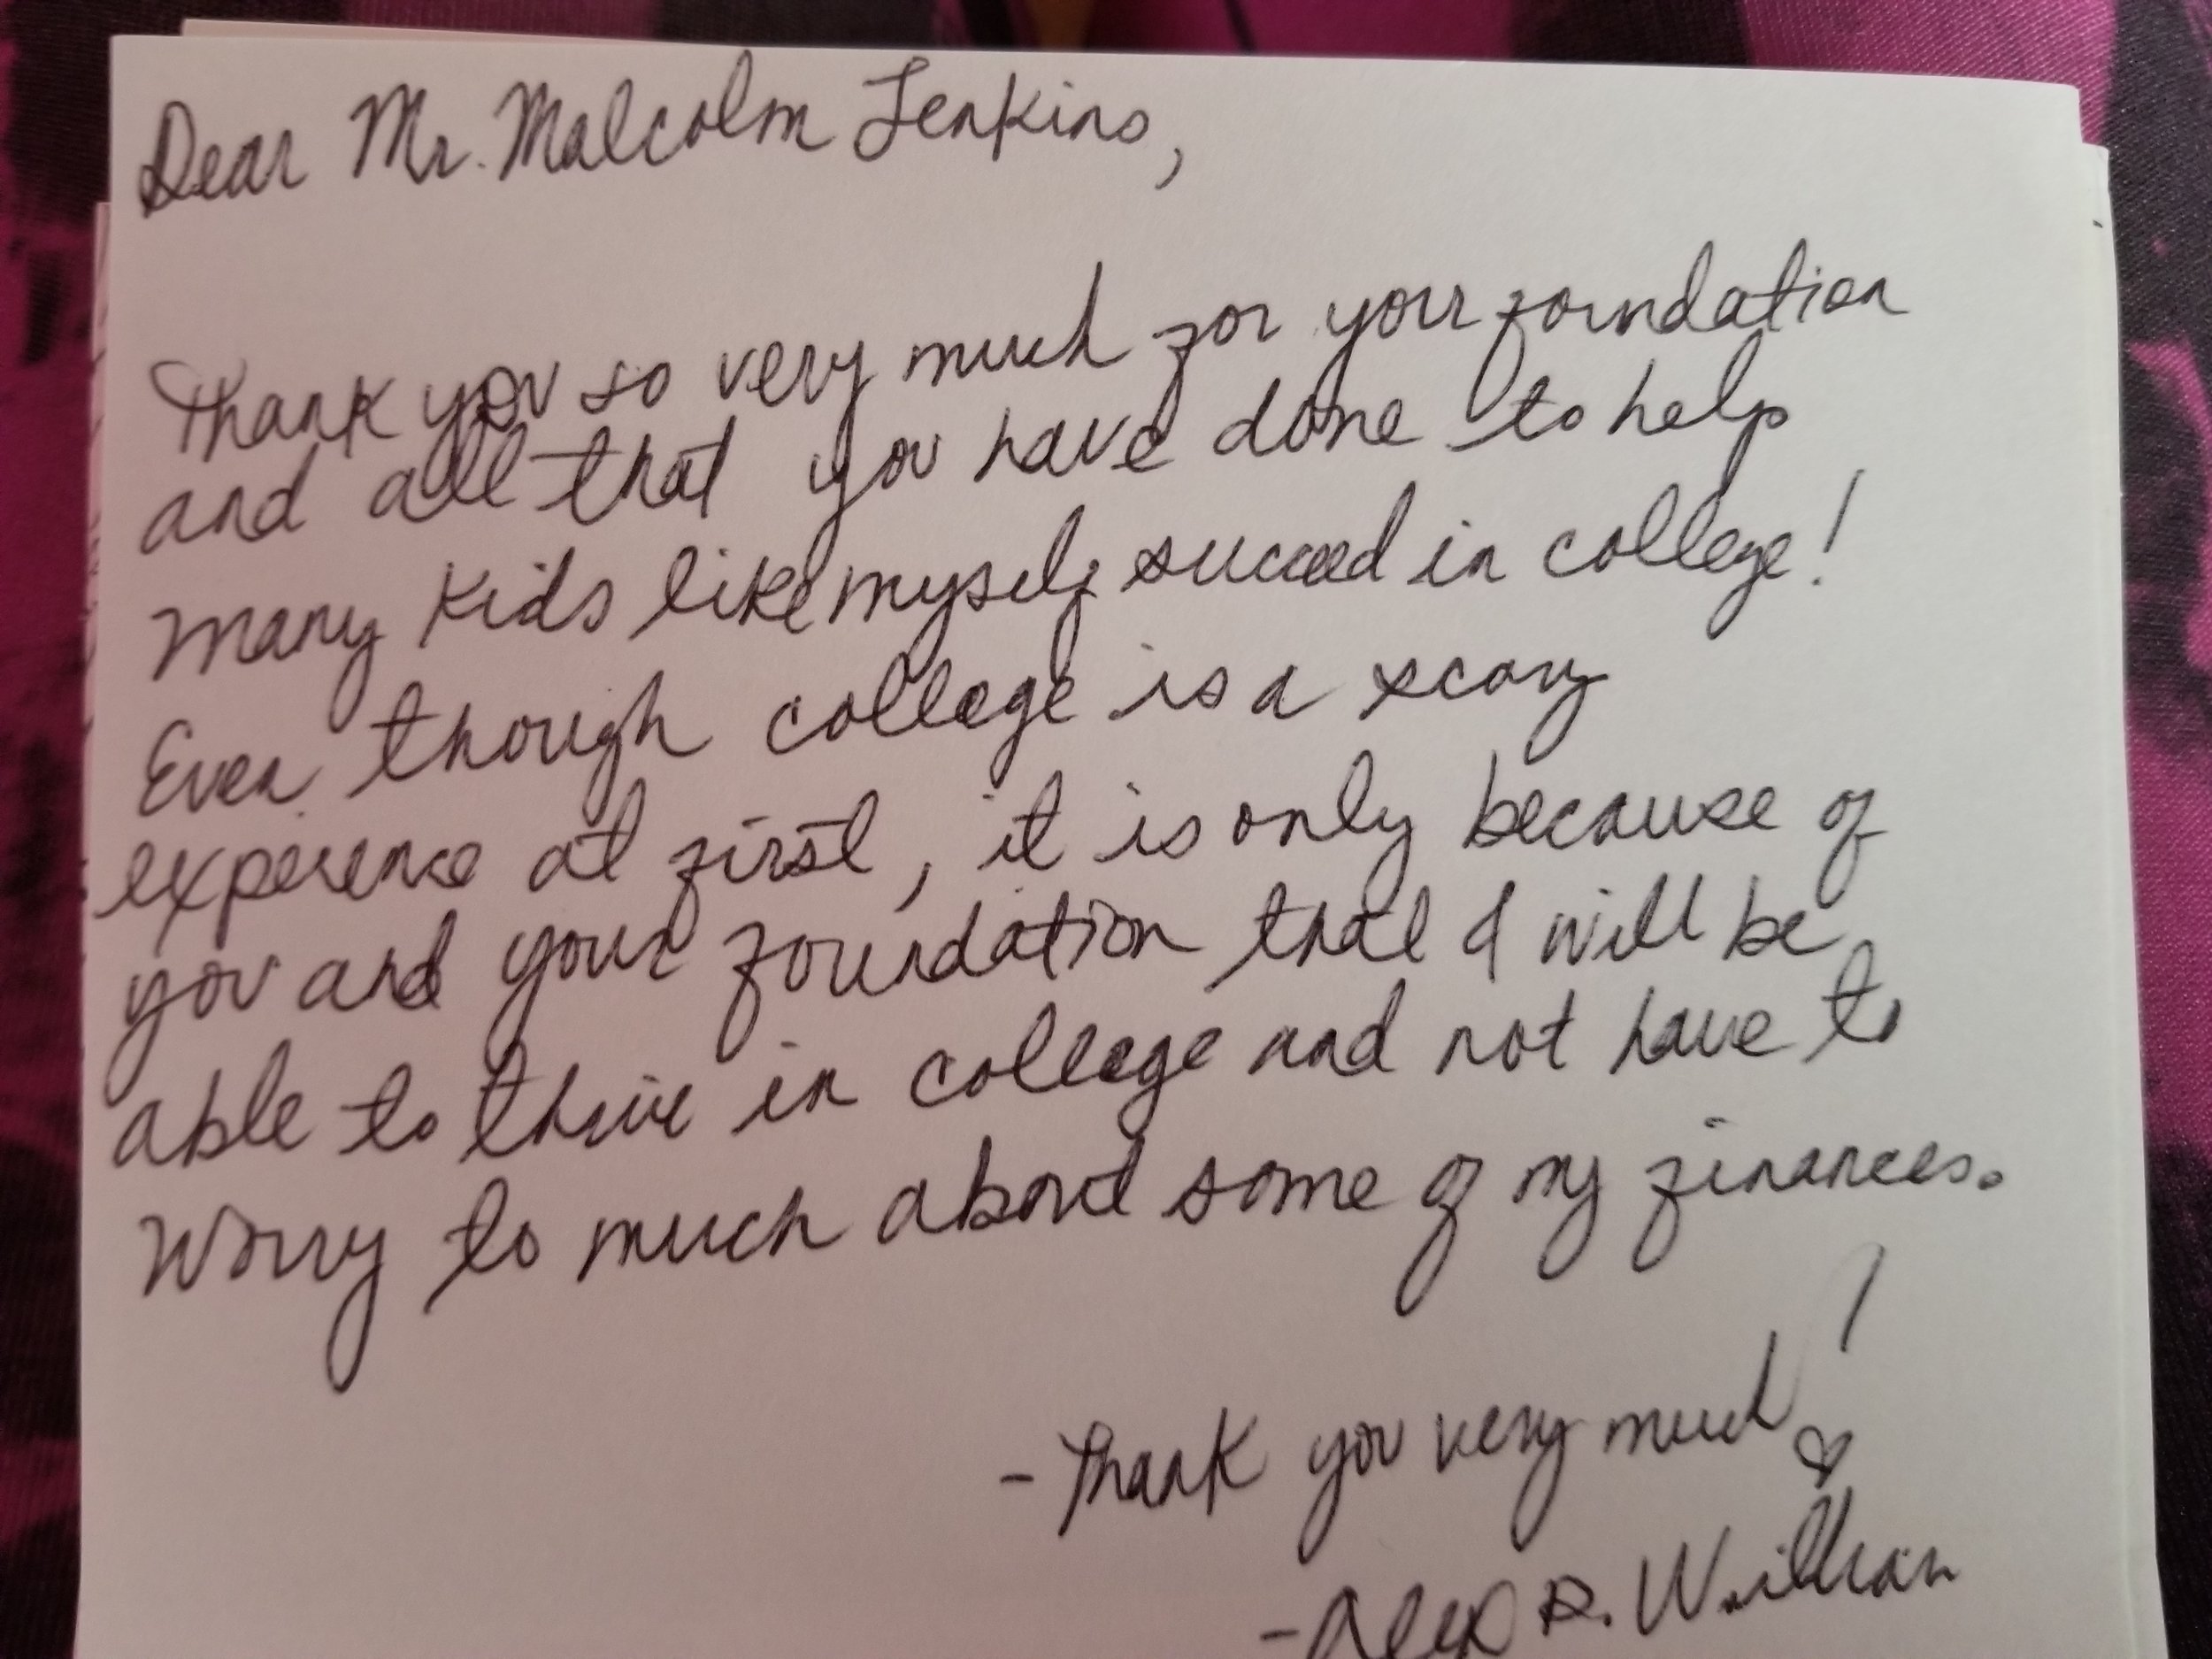 Dear Mr. Malcolm Jenkins,
Thank you so very much for your foundation
and all that you have done to help
many kids like myself succeed in college!
Even though college is a scary
experience at first, it is only because of
you and your foundation that I will be
able to thrive in college and not have to
Worry to much about some of my finances.
- Thank you very much! ♡
- R.